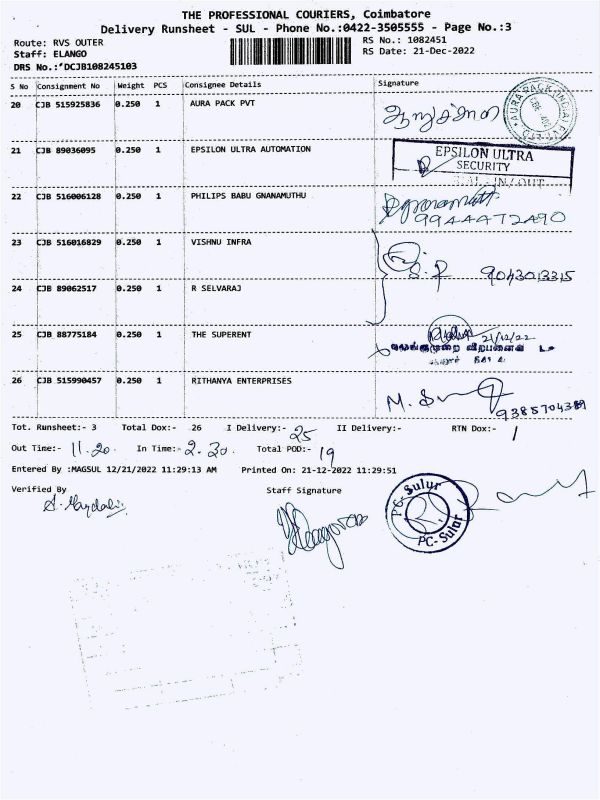 THE PROFESSIONAL COURIERS, Coimbatore
Delivery Runsheet - SUL - Phone No.:0422-3505555 - Page No.:3
Route: RVS OUTER RS No.: 1082451
Staff: ELANGO RS Date: 21-Dec-2022
DRS No.:*DCJB108245103
S No Consignment No Weight PCS Consignee Details Signature
20 CJB 515925836 0.250 1 AURA PACK PVT
21 CJB 89036095 0.250 1 EPSILON ULTRA AUTOMATION EPSILON ULTRA
SECURITY
IN/OUT
22 CJB 516006128 0.250 1 PHILIPS BABU GNANAMUTHU
9944472490
23 CJB 516016829 0.250 1 VISHNU INFRA
S.R 9043013315
24 CJB 89062517 0.250 1 R SELVARAJ
25 CJB 88775184 0.250 1 THE SUPERENT 21/12/22
26 CJB 515990457 0.250 1 RITHANYA ENTERPRISES
9385704389
Tot. Runsheet:- 3 Total Dox:- 26 I Delivery:- 25 II Delivery:- RTN Dox:- 1
Out Time:- 11.20 In Time:- 2.30 Total POD:- 19
Entered By :MAGSUL 12/21/2022 11:29:13 AM Printed On: 21-12-2022 11:29:51
Verified By Staff Signature
PC-Sulur
PC-Sulur